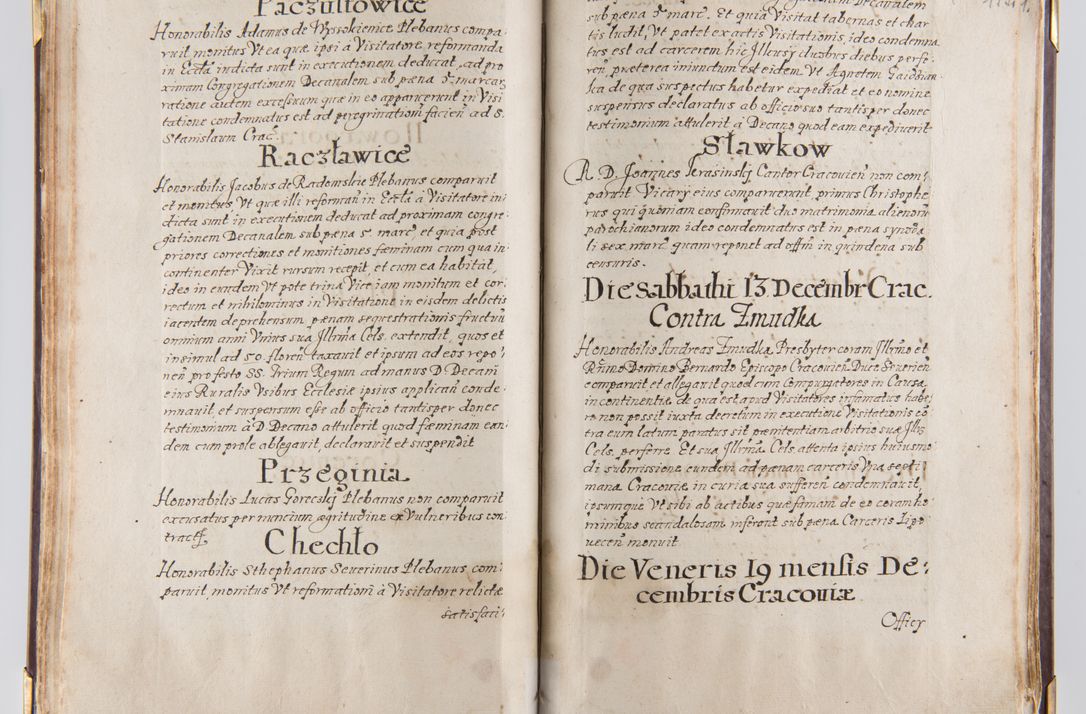 Paczułtowice
Honorabilis Adamus de Wysokienice Plebanus compa:
ruit monitus Vt ea quæ ipsi à Visitatore reformanda
in Eccłâ indicta sunt in executionem deducat, ad pro
ximam Congregationem Decanalem sub pæna 5 marcar,
ratione autem excessuum quæ in eo apparuerunt in Visi
tatione condemnatus est ad peregrinationẽ faciẽn ad S.
Stanislaum Crac.
Raczławice
Honorabilis Jacobus de Radomskie Plebanus comparuit
et monitus Vt quæ illi reforman̄ in Eccłâ à Visitatore in
dicta sunt in executionem deducat ad proximam congre
gationem Decanalem sub pæna 5 marc, et quia post
priores correctiones et monitiones fæminam cum qua in
continenter Vixit rursum recepit, et cum ea habitat,
ideo in eundem Vt pote trina Vice iam monitum et cor
rectum et nihilominus in Visitatione in eisdem delictis
iacentem deprehensum pænam sequestrationis fructuũ
omnium anni Vnius sua Illrma Cels. extendit, quos et
insimul ad 50 floren̄ taxauit et ipsum ad eos repo
nen̄ pro festo SS. Trium Regum ad manus D Decani
eius Ruralis Vsibus Ecclesiæ ipsius applican̄ conde
mnauit, et suspensum esse ab officio tantisper donec
testimonium à D Decano attulerit quod fæminam ean
dem cum prole ablegauit, declarauit et suspendit
Przeginia
Honorabilis Lucas Goreczkÿ Plebanus non comparuit
excusatus per nuncium ægritudine ex Vulneribus con
tracta
Chechło
Honorabilis Sthephanus Seuerinus Plebanus com
paruit, monitus Vt reformationi à Visitatore relictæ
satisfaci
sub pæna 3 marc. Et quia Visitat tabernas et char
tis ludit, Vt patet ex actis Visitationis, ideo condemna
tus est ad carcerem hic Illcusÿ duobus diebus perfe
ren̄, præterea iniunctum est eidem Vt Agnetem
ka de qua suspectus habetur expediat et eo nomine
suspensus declaratus ab officio suo tantisper donec
testimonium attulerit à Decano quod eam expediuerit
Sławkow
R. D. Joannes Kerasinskÿ Cantor Cracouien̄ non com
paruit Vicarÿ eius comparuerunt, primus Christophe
rus qui quoniam confirmauit duo matrimonia alienorũ
parochianorum ideo condemnatus est in pæna synoda
li sex marc quam reponet ad offm in quindena sub
censuris.
Die Sabbathi 13 Decembr Crac.
Contra Zmudka
Honorabilis Andreas Zmudka Presbyter coram Illrmo et
Rñmo Domino Bernardo Episcopo Cracouien̄ Duce Seuerien̄
comparuit et allegauit quod cum Compurgatores in Causa
incontinentiæ de qua est apud Visitatores infamatus habe
re non possit iuxta decretum in executione Visitationis cõ
tra eum latum paratus sit pænitentiam arbitrio suæ Illr̄
Cels. perferre. Et sua Illrma Cels. attenta ipsius huiusmo
di submissione eundem ad pænam carceris Vna septi
mana Cracouiæ in curia sua sufferen̄ condemnauit,
ipsumque Vt sibi ab actibus quæ famam de eo coram ho
minibus scandalosam inferent sub pæna Carceris Lipo
uecen̄ monuit
Die Veneris 19 mensis De:
cembris Cracouiæ
Officÿ